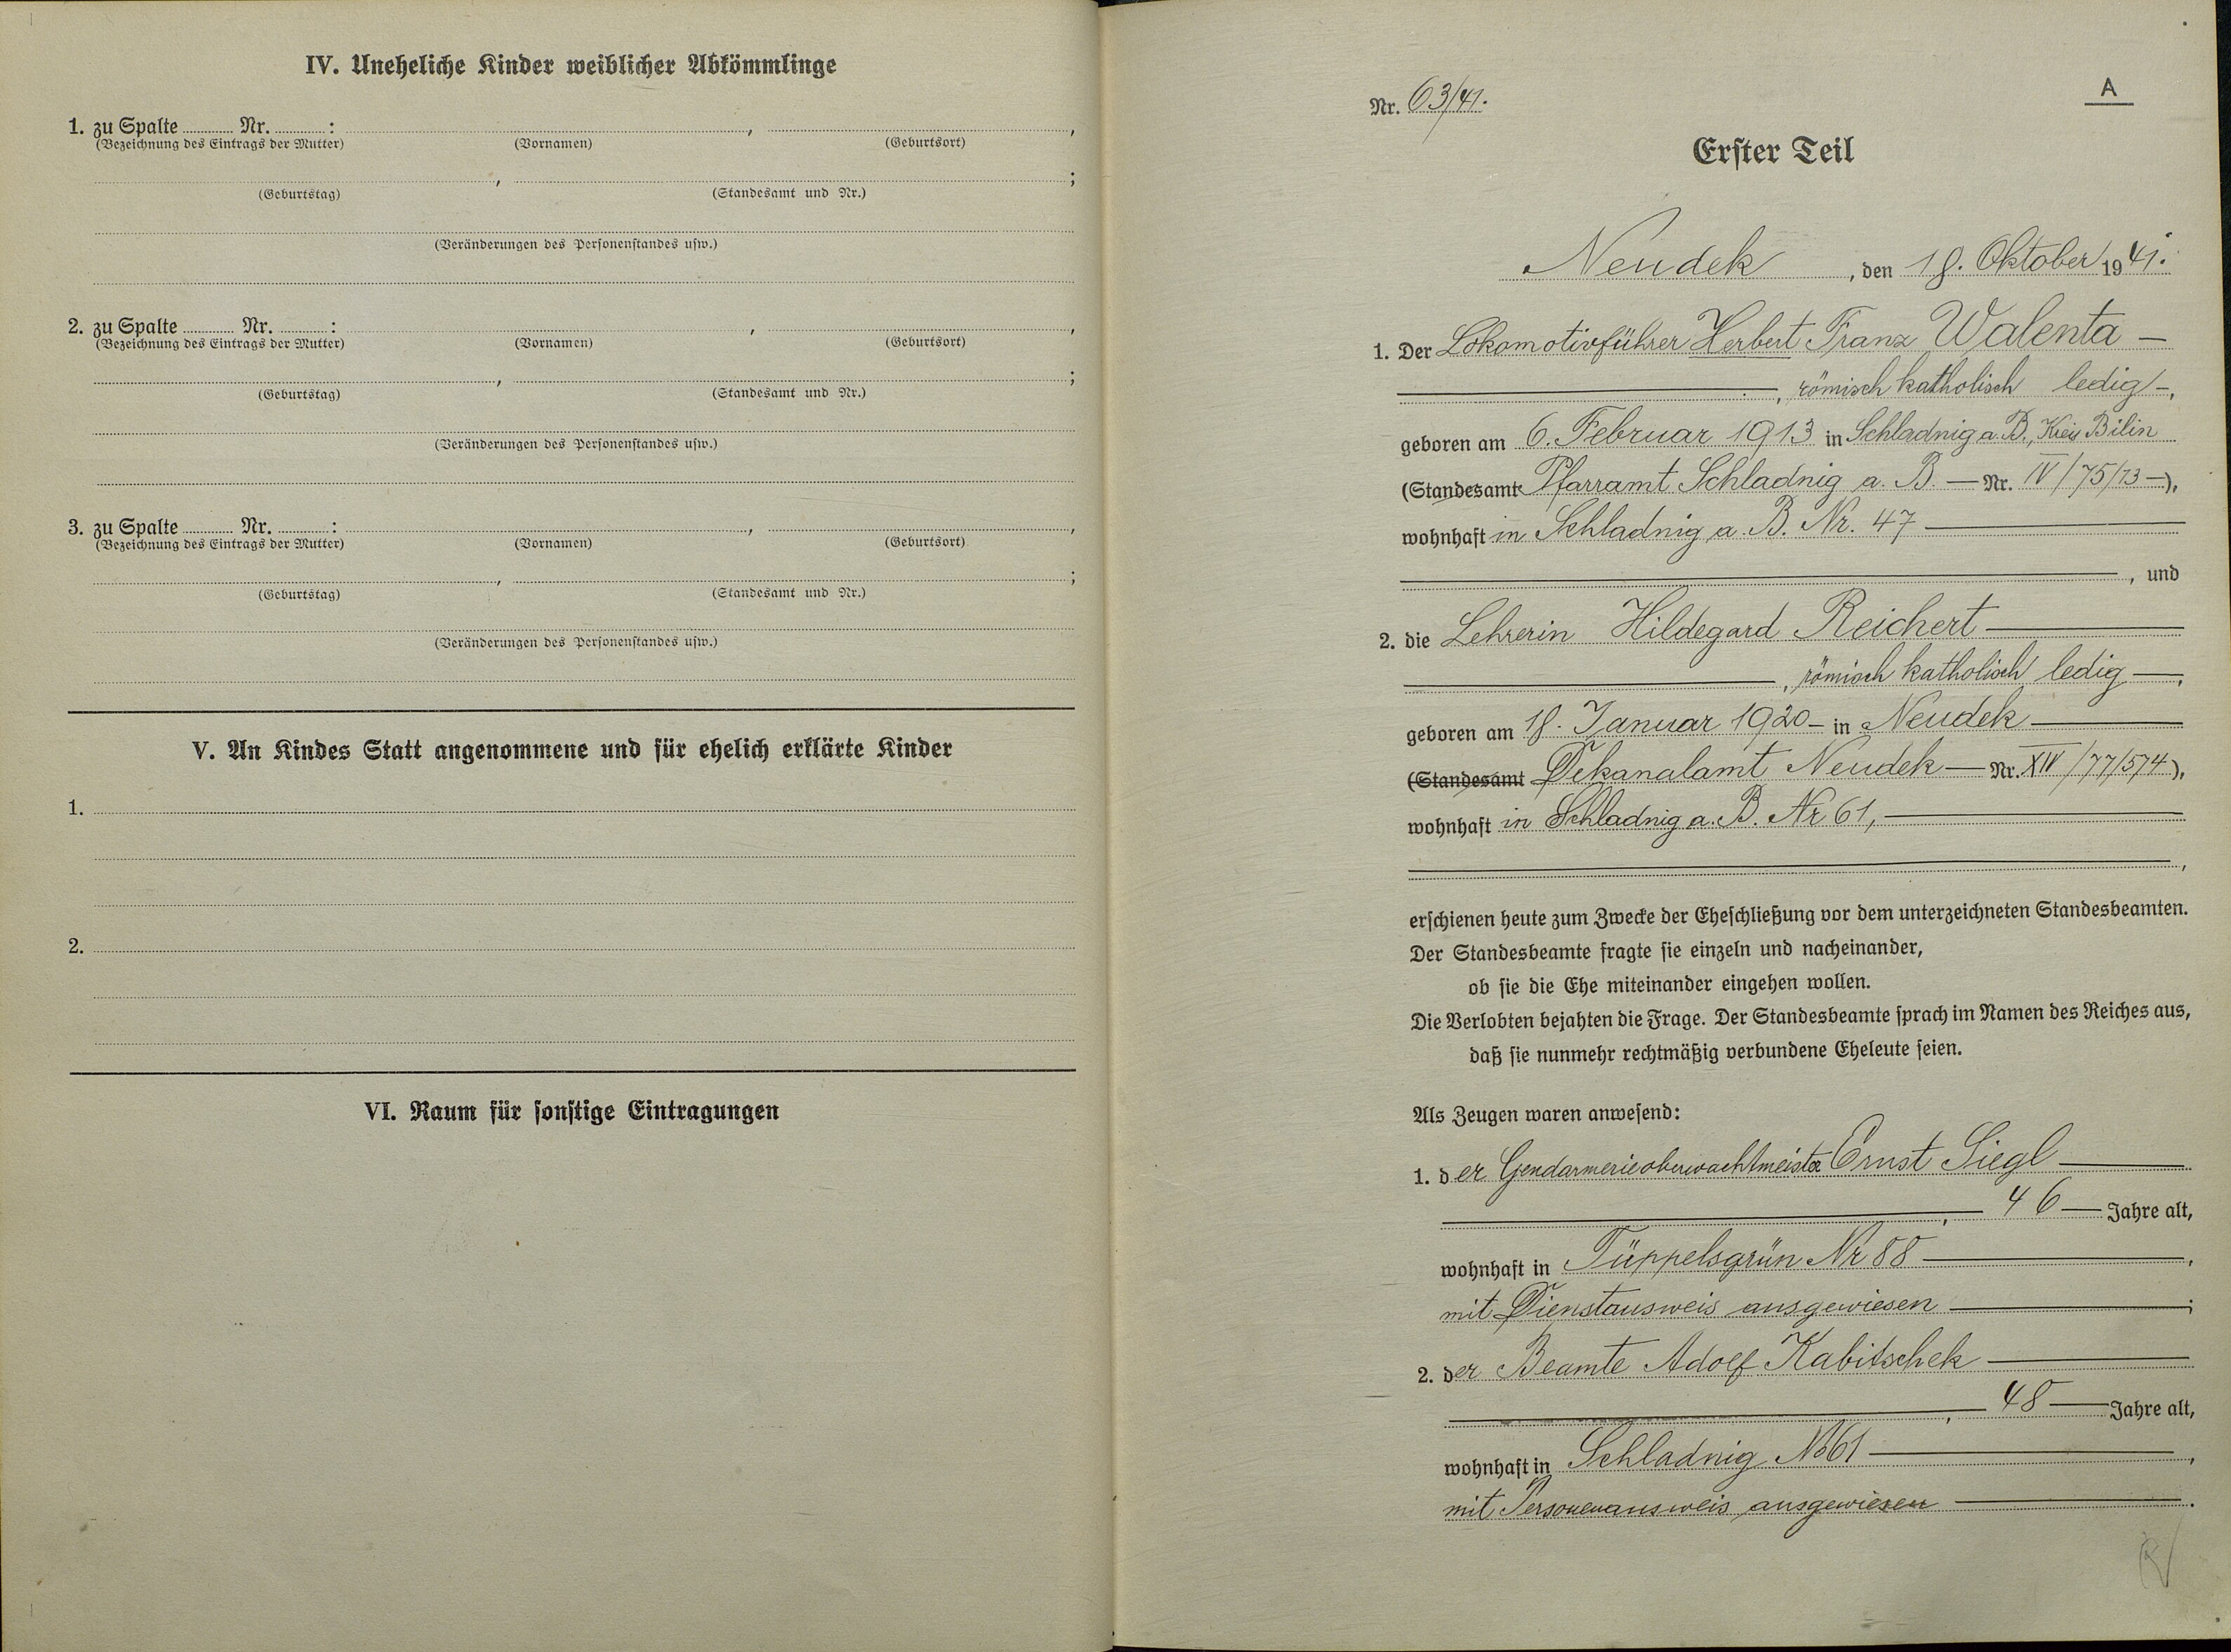 IV. Uneheliche Kinder weiblicher Abkömmlinge
1. zu Spalte ........ Nr. ........ : ........, ........,
(Bezeichnung des Eintrags der Mutter) (Vornamen) (Geburtsort)
........, ........;
(Geburtstag) (Standesamt und Nr.)
(Veränderungen des Personenstandes usw.)
2. zu Spalte ........ Nr. ........ : ........, ........,
(Bezeichnung des Eintrags der Mutter) (Vornamen) (Geburtsort)
........, ........;
(Geburtstag) (Standesamt und Nr.)
(Veränderungen des Personenstandes usw.)
3. zu Spalte ........ Nr. ........ : ........, ........,
(Bezeichnung des Eintrags der Mutter) (Vornamen) (Geburtsort)
........, ........;
(Geburtstag) (Standesamt und Nr.)
(Veränderungen des Personenstandes usw.)
V. An Kindes Statt angenommene und für ehelich erklärte Kinder
1.
2.
VI. Raum für sonstige Eintragungen
A
Nr. 63/41.
Erster Teil
Neudek, den 18. Oktober 1941.
1. Der Lokomotivführer Herbert Franz Walenta —
—, römisch katholisch ledig —,
geboren am 6. Februar 1913 in Schladnig a. B., Kreis Bilin
(Standesamt Pfarramt Schladnig a. B. — Nr. IV/75/13 —),
wohnhaft in Schladnig a. B. Nr. 47 —
—, und
2. die Lehrerin Hildegard Reichert —
—, römisch katholisch ledig —,
geboren am 18. Januar 1920 — in Neudek —
(Standesamt Dekanalamt Neudek — Nr. XIV/77/574),
wohnhaft in Schladnig a. B. Nr 61, —
—,
erschienen heute zum Zwecke der Eheschließung vor dem unterzeichneten Standesbeamten.
Der Standesbeamte fragte sie einzeln und nacheinander,
ob sie die Ehe miteinander eingehen wollen.
Die Verlobten bejahten die Frage. Der Standesbeamte sprach im Namen des Reiches aus,
daß sie nunmehr rechtmäßig verbundene Eheleute seien.
Als Zeugen waren anwesend:
1. der Gendarmerieoberwachtmeister Ernst Siegl —
—, 46 — Jahre alt,
wohnhaft in Tüppelsgrün Nr 88 —,
mit Dienstausweis ausgewiesen —;
2. der Beamte Adolf Kabitschek —
—, 48 — Jahre alt,
wohnhaft in Schladnig No 61 —,
mit Personenausweis ausgewiesen —.